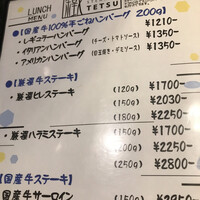 LUNCH
MENU
鐵
TETSU
●【国産牛100%手ごねハンバーグ 200g】
・レギュラーハンバーグ ¥1210-
・イタリアンハンバーグ (チーズ・トマトソース) ¥1350-
・アメリカンハンバーグ (目玉焼き・デミソース) ¥1350-
●【厳選牛ステーキ】
・厳選ヒレステーキ (120g) ¥1700-
(150g) ¥2030-
(180g) ¥2250-
・厳選ハラミステーキ (150g) ¥1700-
(200g) ¥2250-
(250g) ¥2800-
●【国産牛ステーキ】
国産牛サーロイン (150g)